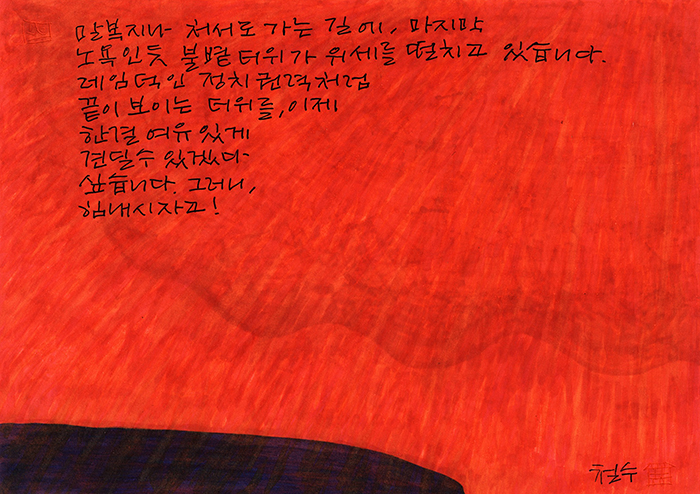 말복지나 처서로 가는 길에, 마지막
노욕인듯 불볕더위가 위세를 떨치고 있습니다.
레임덕인 정치권력처럼
끝이 보이는 더위를, 이제
한결 여유있게
견딜수 있겠다
싶습니다. 그러니,
힘내시자고!
철수